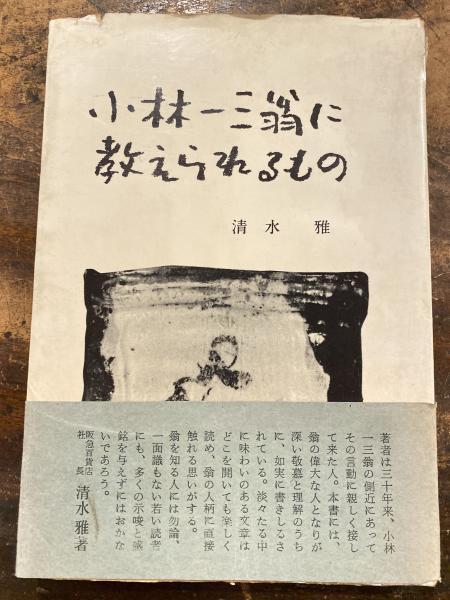 小林一三翁に
教えられるもの
清水 雅
著者は三十年来、小林
一三翁の側近にあって
その言動に親しく接し
て来た人。本書には、
翁の偉大な人となりが
深い敬慕と理解のうち
に、如実に書きしるさ
れている。淡々たる中
に味わいのある文章は
どこを開いても楽しく
読め、翁の人柄に直接
触れる思いがする。
翁を知る人には勿論、
一面識もない若い読者
にも、多くの示唆と感
銘を与えずにはおかな
いであろう。
阪急百貨店
社長 清水雅著